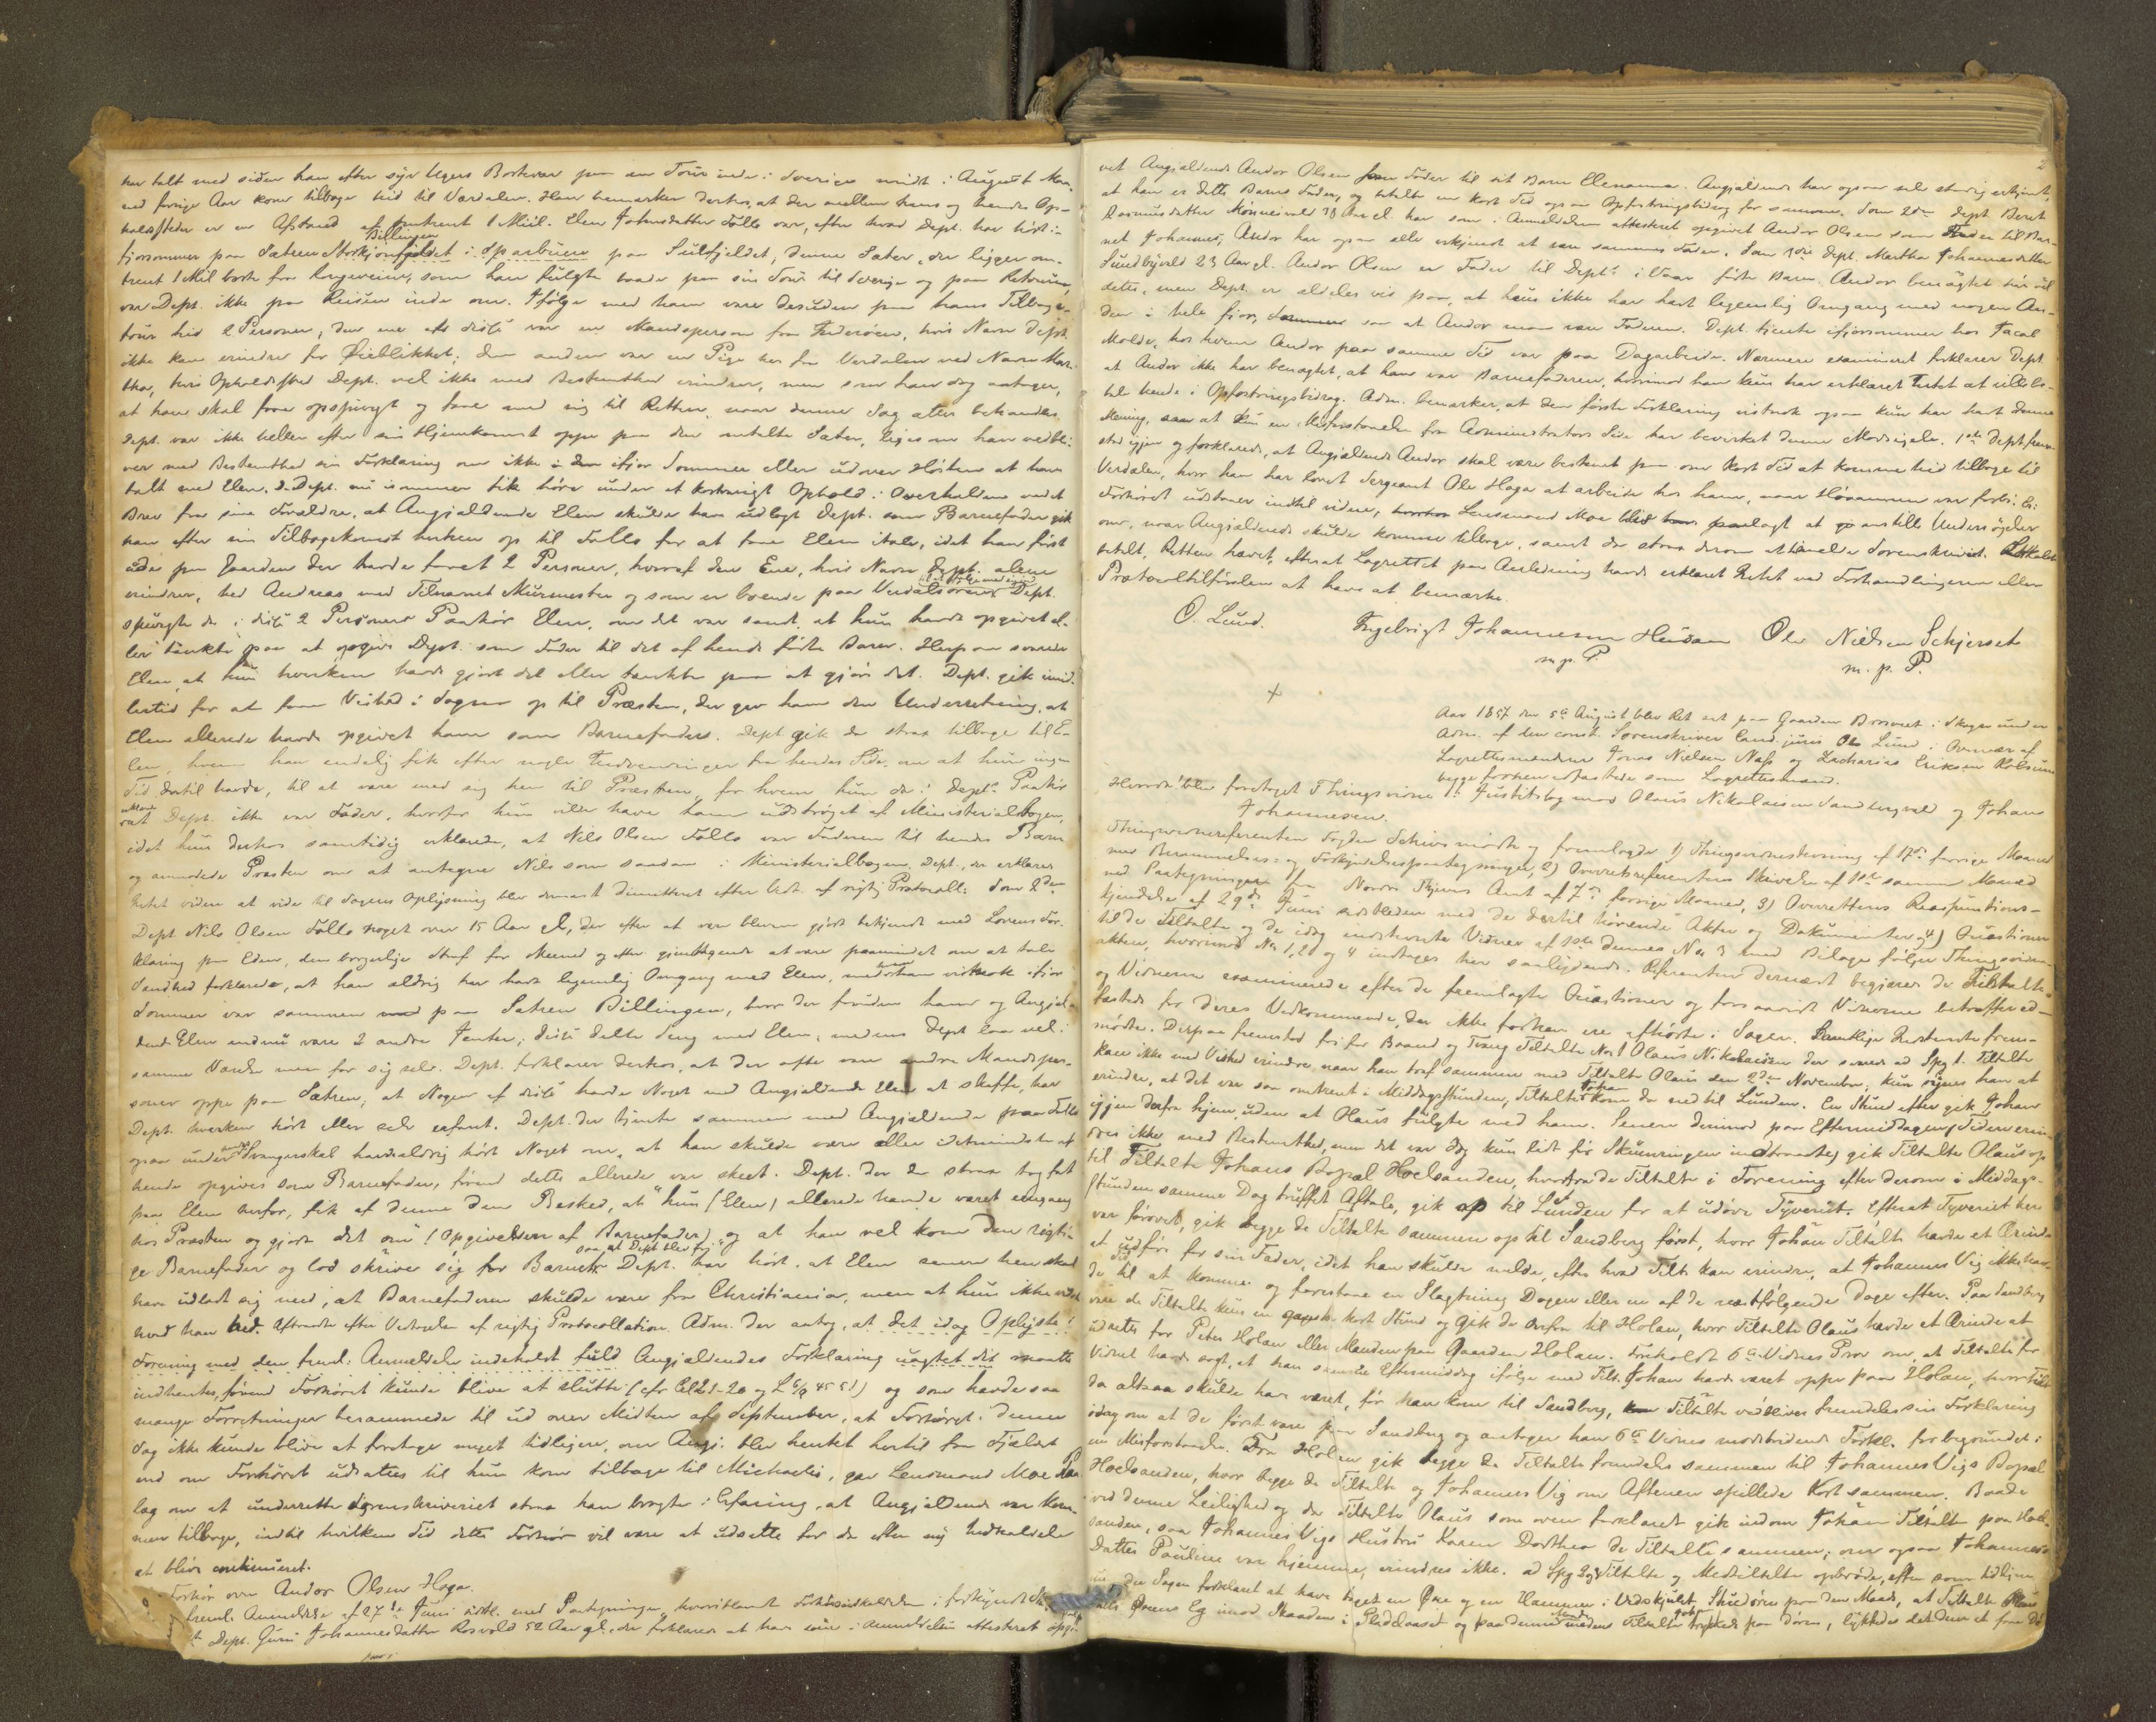 har talt med siden han efter syv Ugers Bortevær paa en Tour inde i Sverige midt i August Maa-
ned forrige Aar kom tilbage hid til Værdalen. Han bemærker derhos, at der mellem hans og hendes Op-
holdssteder er en Afstand af omtrent 1 Miil. Elen Johnsdatter Følle var, efter hvad Dept. har hørt i
fjorsommer paa Sætren Billingen i Sparbuen paa Sulfjeldet, denne Sæter, der ligger om-
trent 1 Mil borte fra Kongeveien, som han fulgte baade paa sin Tour til Sverige og paa Retouren,
var Dept. ikke paa Reisen inde om. Ifølge med ham vare desuden paa hans Tilbage-
tour hid 2 Personer, den ene af disse var en Mandsperson fra Inderøen, hvis Navn Dept.
ikke kan erindre for Øieblikket; den anden var en Pige her fra Verdalen ved Navn Mar-
tha, hvis Opholdssted Dept. vel ikke med Bestemthed erindrer, men som han dog antager,
at han skal faae opspurgt og tage med sig til Retten, naar denne Sag atter behandles.
Dept. var ikke heller efter sin Hjemkomst oppe paa den omtalte Sæter, ligesom han vedbli-
ver med Bestemthed sin Forklaring om ikke ifjor Sommer eller udover Høsten at have
talt med Elen. Da Dept. nu isommer fik høre under et kortvarigt Ophold i Overhalden ved et
Brev fra sine Forældre, at Angjældende Elen skulde have udlagt Dept. som Barnefader gik
han efter sin Tilbagekomst herhen op til Følle for at faae Elen itale, idet han først
ude paa Gaarden der havde faaet 2 Personer, hvoraf den Ene, hvis Navn Dept. alene
erindrer, hed Andreas med Tilnavnet Muurmester og som er boende paa Verdalsøren Dept.
spurgte da i disse 2 Personers Paahør Elen, om det var sandt, at hun havde opgivet el-
ler tænkte paa at opgive Dept. som Fader til det af hende fødte Barn. Herpaa svarede
Elen, at hun hverken havde gjort det eller tænkte paa at gjøre det. Dept. gik imid-
lertid for at faae Vished i Sagen op til Præsten, der gav ham den Underretning, at
Elen allerede havde opgivet ham som Barnefader. Dept gik da strax tilbage til E-
len, hvem han endelig fik efter nogle Indvendinger fra hendes Side, om at hun ingen
Tid dertil havde, til at være med sig hen til Præsten, for hvem hun da i Depts Paahør
Dept. ikke var Fader, hvorfor hun vilde have ham udstrøget af Ministerialbogen,
idet hun derhos samtidig erklærede, at Nils Olsen Følle var Faderen til hendes Barn
og anmodede Præsten om at antegne Nils som saadan i Ministerialbogen. Dept., der erklærer
Intet videre at vide til Sagens Oplysning blev dernæst dimitteret efter Vedt. af rigtig Protocoll. Som 2den
Dept. Nils Olsen Følle noget over 15 Aar gl, der efter at være bleven gjort bekjendt med Lovens For-
klaring paa Eden, den borgerlige Straf for Meened og efter gjentagende at være paamindet om at tale
Sandhed forklarede, at han aldrig har havt legemlig Omgang med Elen, med hvem han vistnok ifjor
Sommer var sammen paa Sætren Billingen, hvor der foruden ham og Angjæl-
dende Elen endnu vare 2 andre Jenter; disse delte Seng med Elen, medens Dept laae vel i
samme Værelse men for sig selv. Dept. forklarer derhos, at der ofte var andre Mandsper-
soner oppe paa Sætren; at Nogen af disse havde Noget med Angjældende Elen at skaffe, har
Dept. hverken hørt eller selv erfaret. Dept. der tjente sammen med Angjældende paa Følle
ogsaa under Svangerskabet havde aldrig hørt Noget om, at han skulde være eller idetmindste af
hende opgives som Barnefader, førend dette allerede var skeet. Dept. der da strax tog fat
paa Elen derfor, fik af denne den Besked, at "hun (Elen) allerede havde været engang
hos Præsten og gjort det om (Opgivelsen af Barnefader) og at han vel kom den rigti-
ge Barnefader og lod skrive sig for Barnet, saa at Dept blev fri." Dept. har hørt, at Elen senere hen skal
have udladt sig med, at Barnefaderen skulde være fra Christiania, men at hun ikke vidste
hvad han hed. Aftraadte efter Vedtagelse af rigtig Protocollation. Adm. der antog, at det idag Oplyste i
Forening med den freml. Anmeldelse indeholdt fuld Angjældendes Forklaring uagtet dit maatte
indhentes, førend Forhøret kunde blive at slutte og som havde saa
mange Forretninger berammede til ud over Midten af September, at Forhøret i denne
Sag ikke kunde blive at foretage meget tidligere, om Angj. blev hentet hertil fra Fjeldet
end om Forhøret udsattes til hun kom tilbage til Michaelis, gav Lensmand Moe Paa-
læg om at underrette Sorenskriveriet strax han bragte i Erfaring, at Angjældende var kom-
men tilbage, indtil hvilken Tid dette Forhør vil være at udsætte for da efter ny Indkaldelse
at blive continueret.
Forhør over Andor Olsen Haga.
freml. Anmeldelse af 27de Juni sidstl. med Paategninger, hvoriblandt Forhørsindkaldelsen i forkyndt
Dept. Guru Johannesdatter Rosvold 52 Aar gl., der forklarer at have som i Anmeldelsen attesteret opgi-
2
vet Angjældende Andor Olsen som Fader til sit Barn Elenanna. Angjældende har ogsaa selv stadig erkjendt,
at han er dette Barns Fader, og betalte en kort Tid ogsaa Opfostringsbidrag for samme. Som 2den Dept Beret
Rasmusdatter 38 Aar gl. har som i Anmeldelsen attesteret opgivet Andor Olsen som Fader til Bar-
net Johannes; Andor har ogsaa altid erkjendt at være sammes Fader. Som 3die Dept. Martha Johannesdatter
Sundbyvald 23 Aar gl. Andor Olsen er Fader til Depts i Vaar fødte Barn. Andor benægtet her vel
dette, men Dept. er aldeles vis paa, at hun ikke har havt legemlig Omgang med nogen An-
den i hele fjor, saa at Andor maa være Faderen. Dept. tjente ifjorsommer hos Jacob
Molde, hos hvem Andor paa samme Tid var paa Dagarbeide. Nærmere examineret forklarer Dept
at Andor ikke har benægtet, at han var Barnefaderen, hvorimod han kun har erklæret Intet at ville be-
tale hende i Opfostringsbidrag. Adm. bemærker, at den første Forklaring vistnok ogsaa kun har havt denne
Mening, saa at kun en Misforstaaelse fra Administrators Side har bevirket denne Modsigelse. 1ste Dept frem-
stod igjen og forklarede, at Angjældende Andor skal være bestemt paa om kort Tid at komme hid tilbage til
Verdalen, hvor han har lovet Sergeant Ole Haga at arbeide hos ham, naar Høaannen var forbi.
Forhøret udstaaer indtil videre, Lensmand Moe blev paalagt at anstille Undersøgelser
om, naar Angjældende skulde komme tilbage, samt da strax derom at tilmelde Sorenskriveriet.
betalt, Retten hævet, efterat Lagrettet paa Anledning havde erklæret Intet ved Forhandlingerne eller
Protocoltilførselen at have at bemærke.
O. Lund. Ingebrigt Johannesen Ole Nielsen Schjerset
m. p. P. m. p. P.
+
Aar 1857 den 5te August blev Ret sat paa Gaarden i Skogn under
Adm. af den const. Sorenskriver Cand. juris O. Lund i Overvær af
Lagrettesmændene Jonas Nielsen Næss og Zacharias Eriksen
begge forhen edfæstede som Lagrettesmænd.
Hvorda blev foretaget Thingsvidne i Justitssag mod Olaus Nikolaisen Sandbergvald og Johan
Johannesen.
Thingsvidnereferenten Fogden Schive mødte og fremlagde 1) Thingsvidnestevning af 17de forrige Maaned
med Berammelses- og Forkyndelsespaategninger, 2) Overretsreferentens Skrivelse af 1ste samme Maaned
med Paategninger fra Nordre Thjems Amt af 7de forrige Maaned, 3) Overrettens Reassumtions-
kjendelse af 29de Juni sidstleden med de dertil hørende Akter og Dokumenter og 4) Quæstioner
til de Tiltalte og de idag indstevnte Vidner af 1ste dennes No 3 med Bilage følger Thingsvidne-
akten, hvorimod No 1, 2 og 4 indtages her saalydende. Referenten dernæst begjærede de Tiltalte
og Vidnerne examinerede efter de fremlagte Quæstioner og forsaavidt Vidnerne betræffer ed-
fæstede for deres Vedkommende, der ikke forhen ere afhørte i Sagen. Samtlige Indstevnte frem-
mødte. Derpaa fremstod fri for Baand og Tvang Tiltalte No 1 Olaus Nikolaisen der svarede ad Spg 1. Tiltalte
kan ikke med Vished erindre, naar han traf sammen med Tiltalte Olaus den 2den November; kun synes han at
erindre, at det var saa omtrent i Middagsstunden, Tiltalte Johan kom da ned til Lunden. En Stund efter gik Johan
igjen derfra hjem, uden at Olaus fulgte med ham. Senere derimod paa Eftermiddagen, Tiden erin-
dres ikke med Bestemthed, men det var dog kun lidt før Skumringen indtraadte, gik Tiltalte Olaus op
til Tiltalte Johans Bopæl Hoelsanden, hvorfra de Tiltalte i Forening efter derom i Middags-
stunden samme Dag truffet Aftale, gik op til Lunden for at udøve Tyveriet. Efterat Tyveriet her
var forøvet, gik begge de Tiltalte sammen op til Sandberg først, hvor Johan Tiltalte havde et Ærinde
at udføre for sin Fader, idet han skulde melde, efter hvad Tilt. kan erindre, at Johannes Vig ikke hav-
de Tid til at komme og forestaae en Slagtning Dagen eller en af de næstfølgende Dage efter. Paa Sandberg
vare de Tiltalte kun en ganske kort Stund og gik de derfra til Holan, hvor Tiltalte Olaus havde et Ærinde at
udrette for Peter Holan eller Manden paa Gaarden Holan. Foreholdt 6te Vidnes Prov om, at Tiltalte for
Vidnet havde sagt, at han samme Eftermiddag ifølge med Tilt. Johan havde været oppe paa Holan, hvor Tilt.
da altsaa skulde have været, før han kom til Sandberg, Tiltalte vedbliver fremdeles sin Forklaring
idag om at de først vare paa Sandberg og antager han 6te Vidnes modstridende Forkl. for begrundet i
en Misforstaaelse. Fra Holan gik begge de Tiltalte fremdeles sammen til Johannes Vigs Bopæl
Hoelsanden, hvor begge de Tiltalte og Johannes Vig om Aftenen spillede Kort sammen. Baade
ved denne Leilighed og da Tiltalte Olaus som oven forklaret gik indom Johan Tiltalte paa Hoel-
sanden, saa Johannes Vigs Hustru Karen Dorthea de Tiltalte sammen; om ogsaa Johannes's
Datter Pauline var hjemme, erindres ikke. ad Spg 2. Tiltalte og Medtiltalte opbrøde, efter som tidligere
under Sagen forklaret at have taget en Øxe og en Hammer i Vedskjulet, Skuedøren paa den Maade, at Tiltalte Olaus
satte Øxens Eg imod Skaaden i Pladelaaset og paa denne Maade medens Tiltalte trykkede paa Døren, lykkedes det dem at faae Dø-